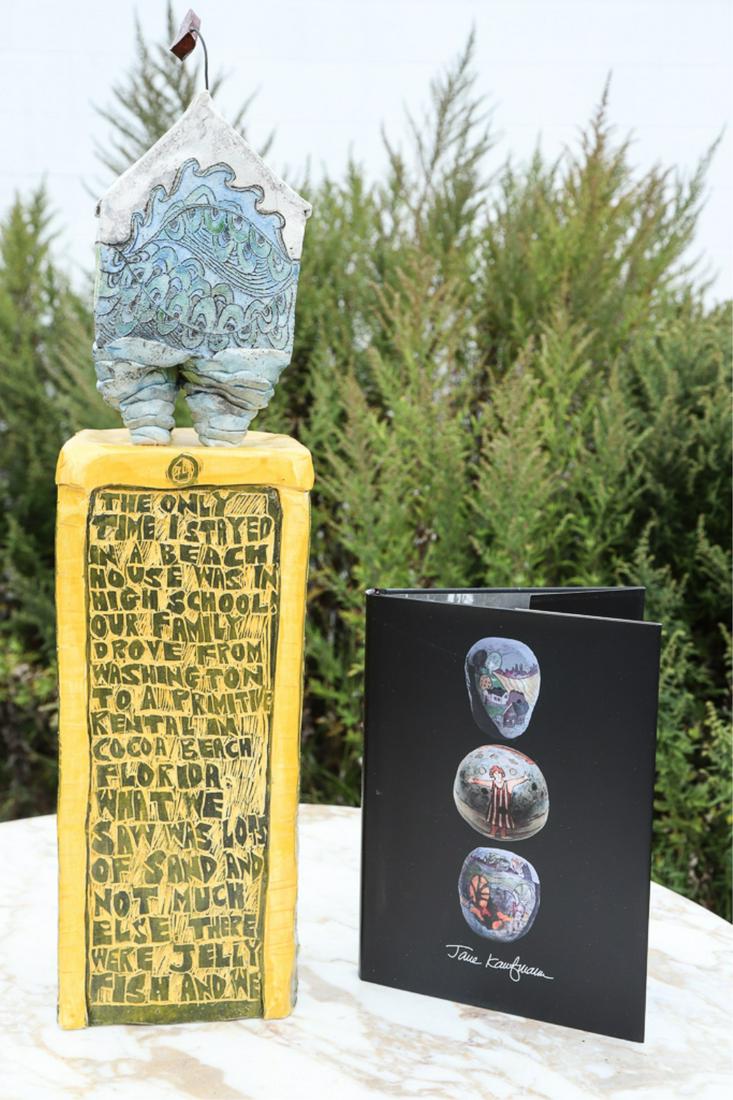 THE ONLY
TIME I STAYED
IN A BEACH
HOUSE WAS IN
HIGH SCHOOL.
OUR FAMILY
DROVE FROM
WASHINGTON
TO A PRIMITIVE
RENTAL IN
COCOA BEACH
FLORIDA.
WHAT WE
SAW WAS LOTS
OF SAND AND
NOT MUCH
ELSE THERE
WERE JELLY
FISH AND WE
Jane Kaufmann